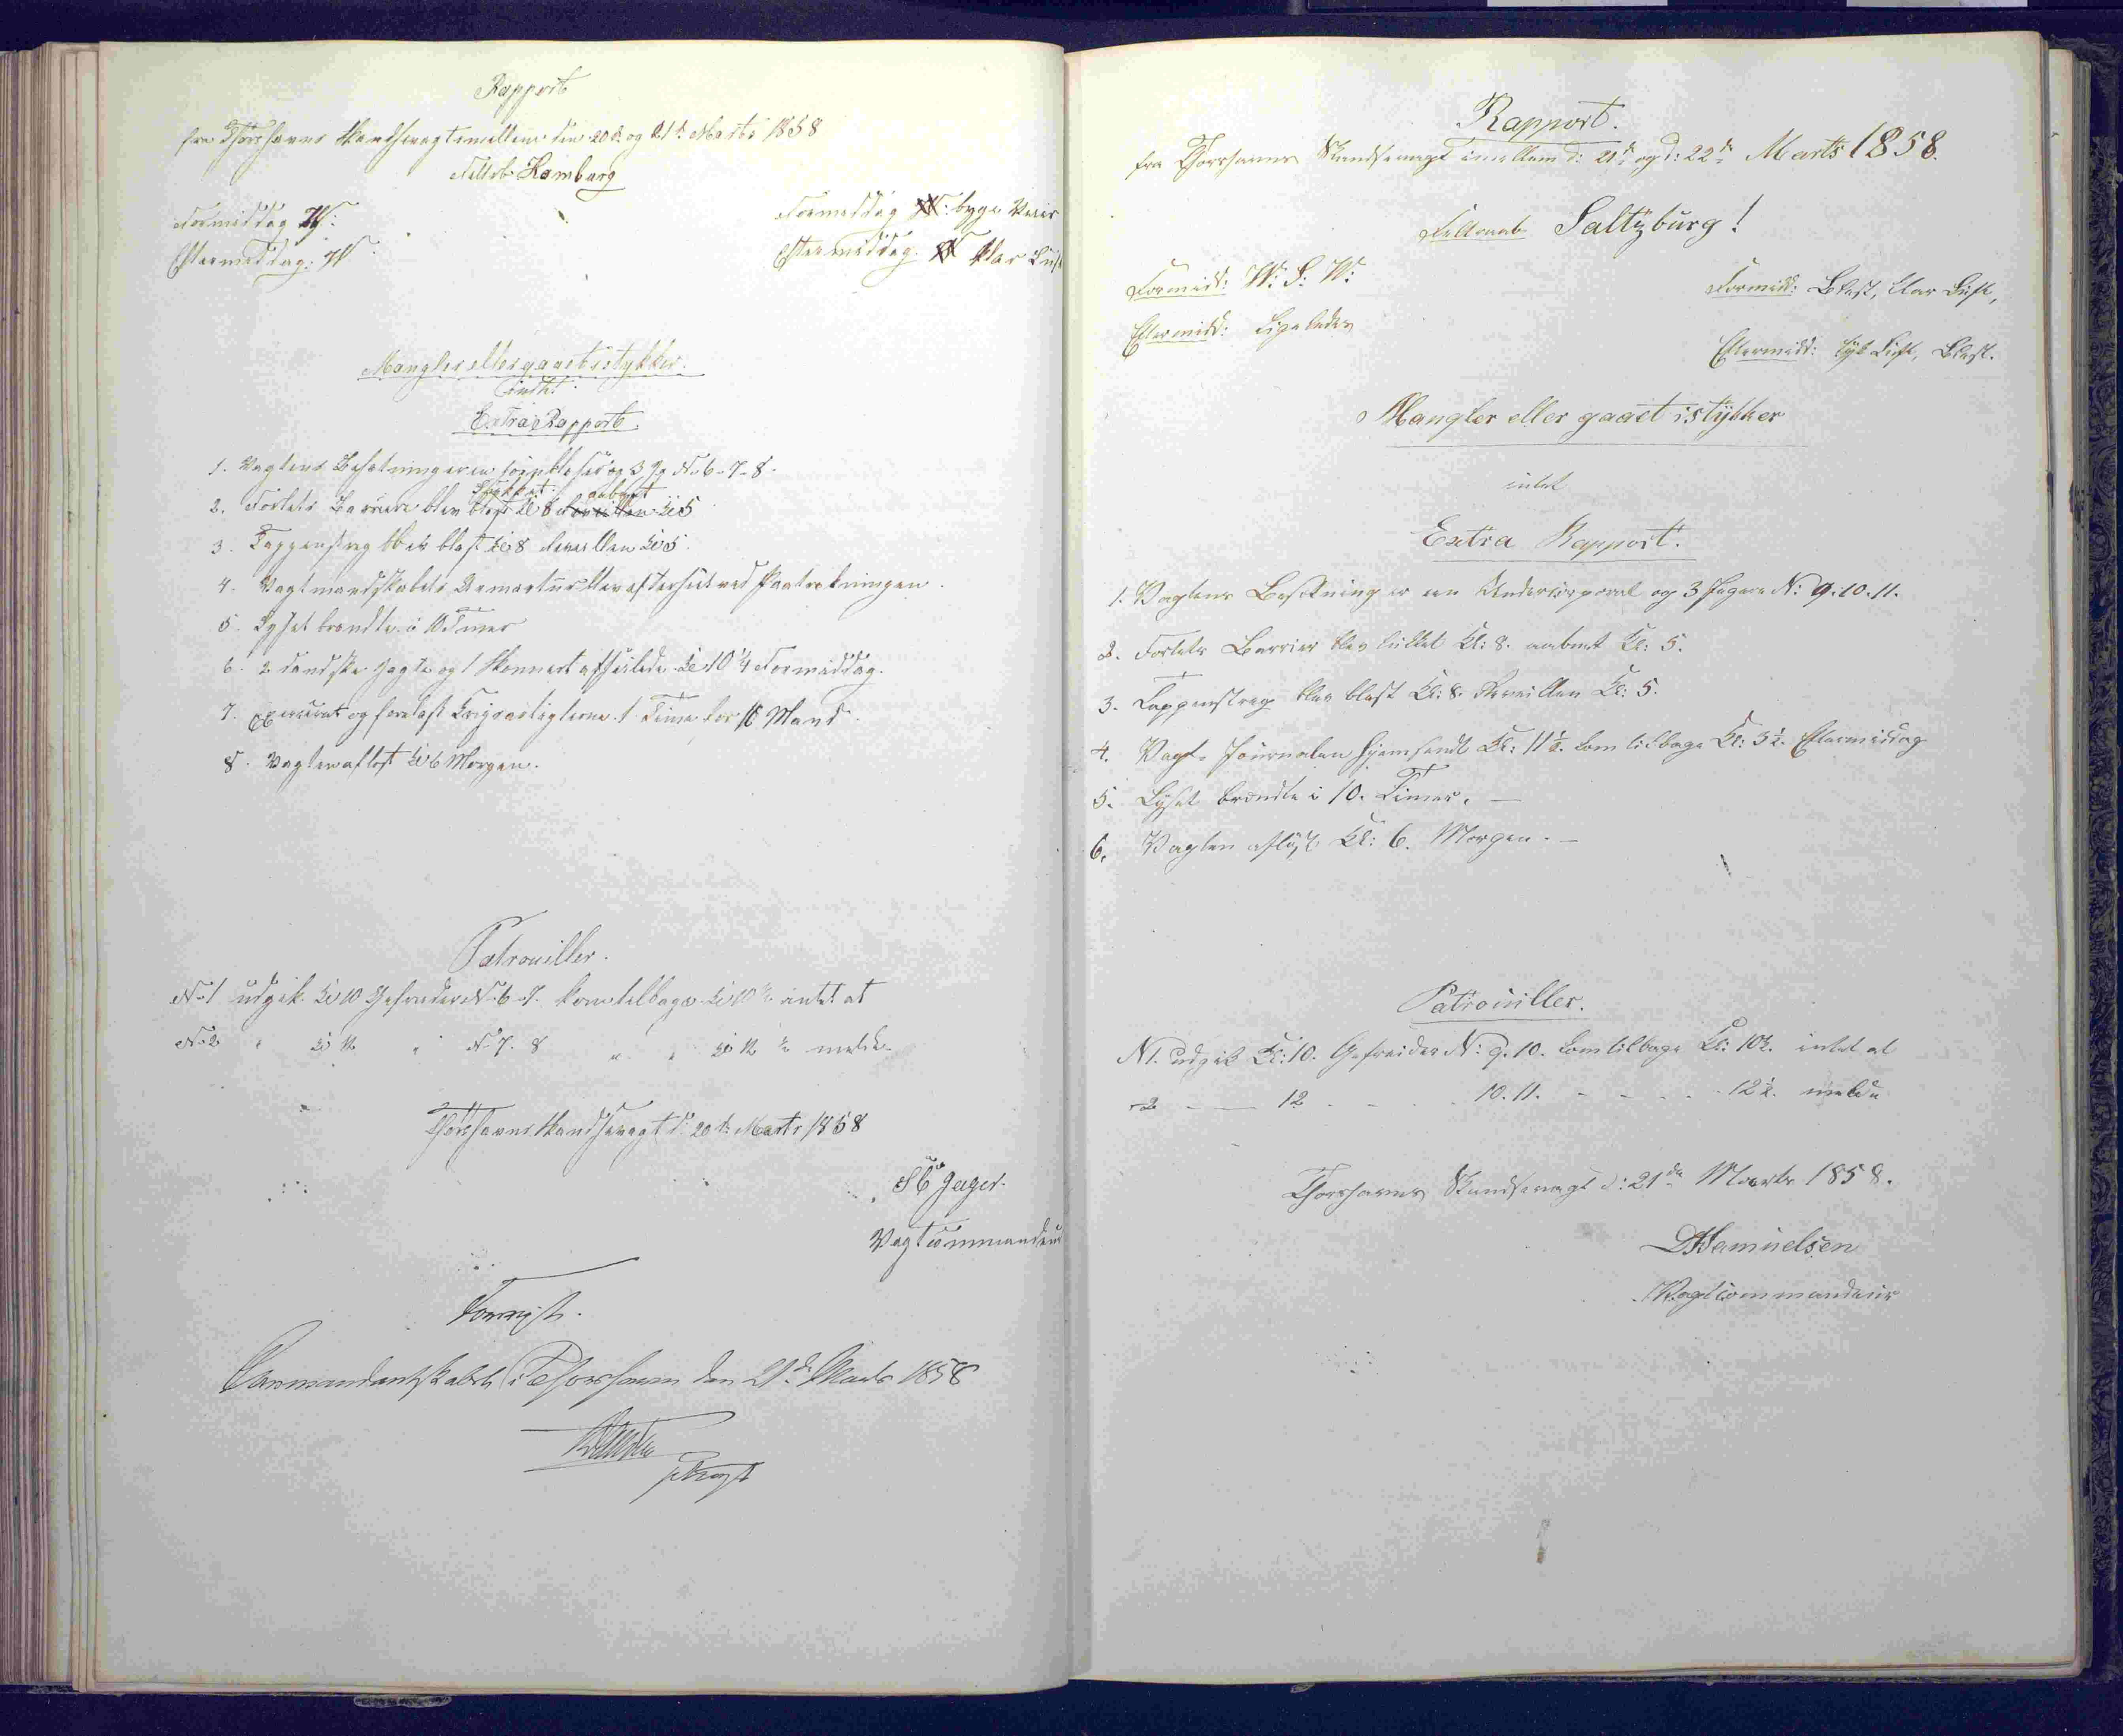 Rapport
fra Thorshavns Skandsevagt imellem den 20de og 21de Marts 1858
Feltrb Homburg
Formiddag W:
Eftermiddag: W
Formiddag byge Veir
Eftermiddag klar Luft
Mangler eller gaaet istykker.
intet
Extra Rapport
1. Vagtens Besætning er en og 3 Jg No 6-7-8.
lukket aabnet
2. Fortets Barriere blev Kl 8 Kl 5
3. Tappenstreg blev blæst Kl 8 Reveillen Kl 5.
4. Vagtmandskabets Armartur blev efterseet ved Paatrækningen.
5. Lyset brændte i 10 Timer
6. 2 danske Jagte og 1 Skonnert afseilede Kl 10 1/4 Formiddag.
7. Exerceret og forelæst Krigsartiklerne 1 Time for 16 Mand.
8. Vagten afløst Kl 6 Morgen.
Patrouiller.
No 1 udgik Kl 10 Gefreider No 6-7. kom tilbage Kl 10 1/2 intet at
No 2 " Kl 12 " No 7. 8 " " Kl 12 1/2 melde.
Thorshavns Skandsevagt d: 20de Marts 1858
Jæger
Vagtcommandeur
Foreviist.
Commandantskabet i Thorshavn den 21de Marts 1858
Rapport.
fra Thorshavns Skandsevagt imellem d: 21de og d: 22de Marts 1858.
Feltraab Saltzburg!
Formidd: W: S: W:
Eftermidd: Ligeledes
Formidd: Blæst, klar Luft,
Eftermidd: tyk Luft, Blæst.
Mangler eller gaaet istykker
intet
Extra Rapport.
1. Vagtens Besætning er een Undercorporal og 3 Jægere N: 9. 10. 11.
2. Fortets Barrier blev lukket Kl: 8. aabnet Kl: 5.
3. Tappenstreg blev blæst Kl: 8. Reveillen Kl: 5.
4. Vagt-Journalen hjemsendt Kl: 11 1/2. kom tilbage Kl: 3 1/2. Eftermiddag
5. Lyset brændte i 10. Timer. —
6. Vagten afløst Kl: 6. Morgen. —
Patrouiller.
N 1. udgik Kl: 10. Gefreider N: 9. 10. kom tilbage Kl: 10 1/2. intet at
- 2 — — 12 - - - 10. 11. - - - - 12 1/2. melde
Thorshavns Skandsevagt d: 21de Marts 1858.
DHSamuelsen
Vagtcommandeur